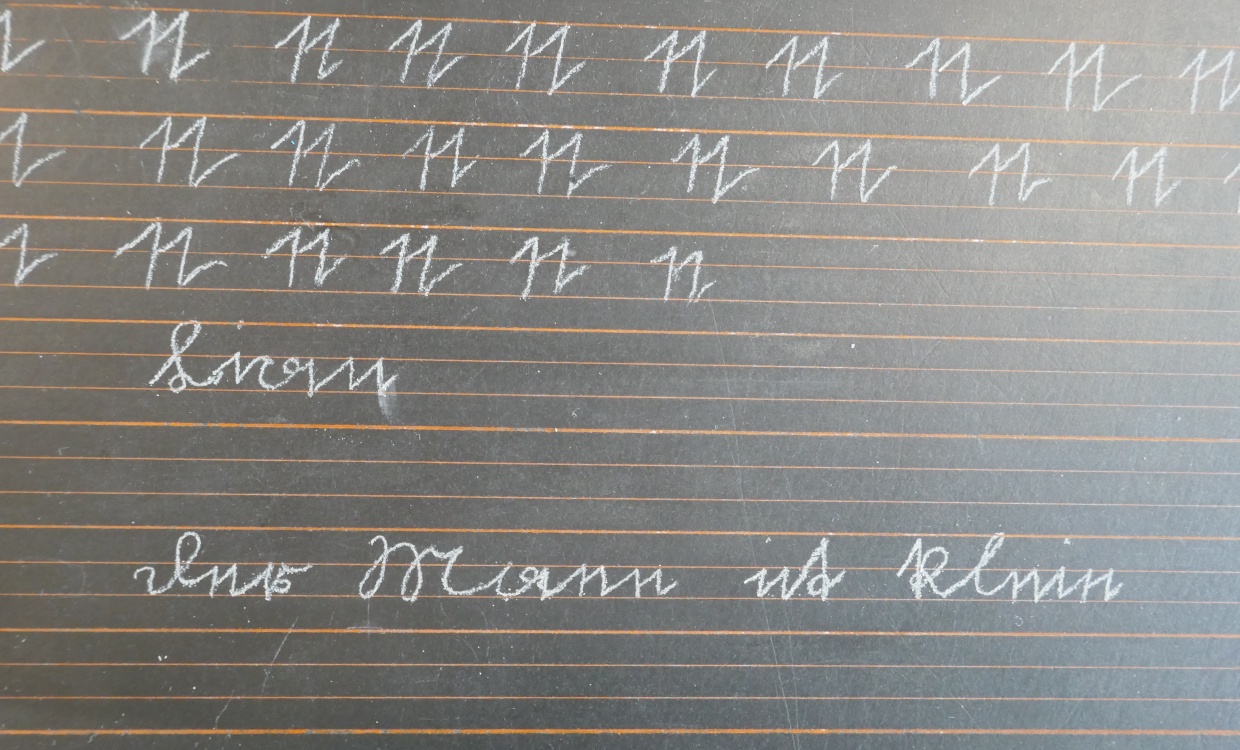 N N N N N N N N N N
N N N N N N N N N
N N N N N N
der Mann ist klein